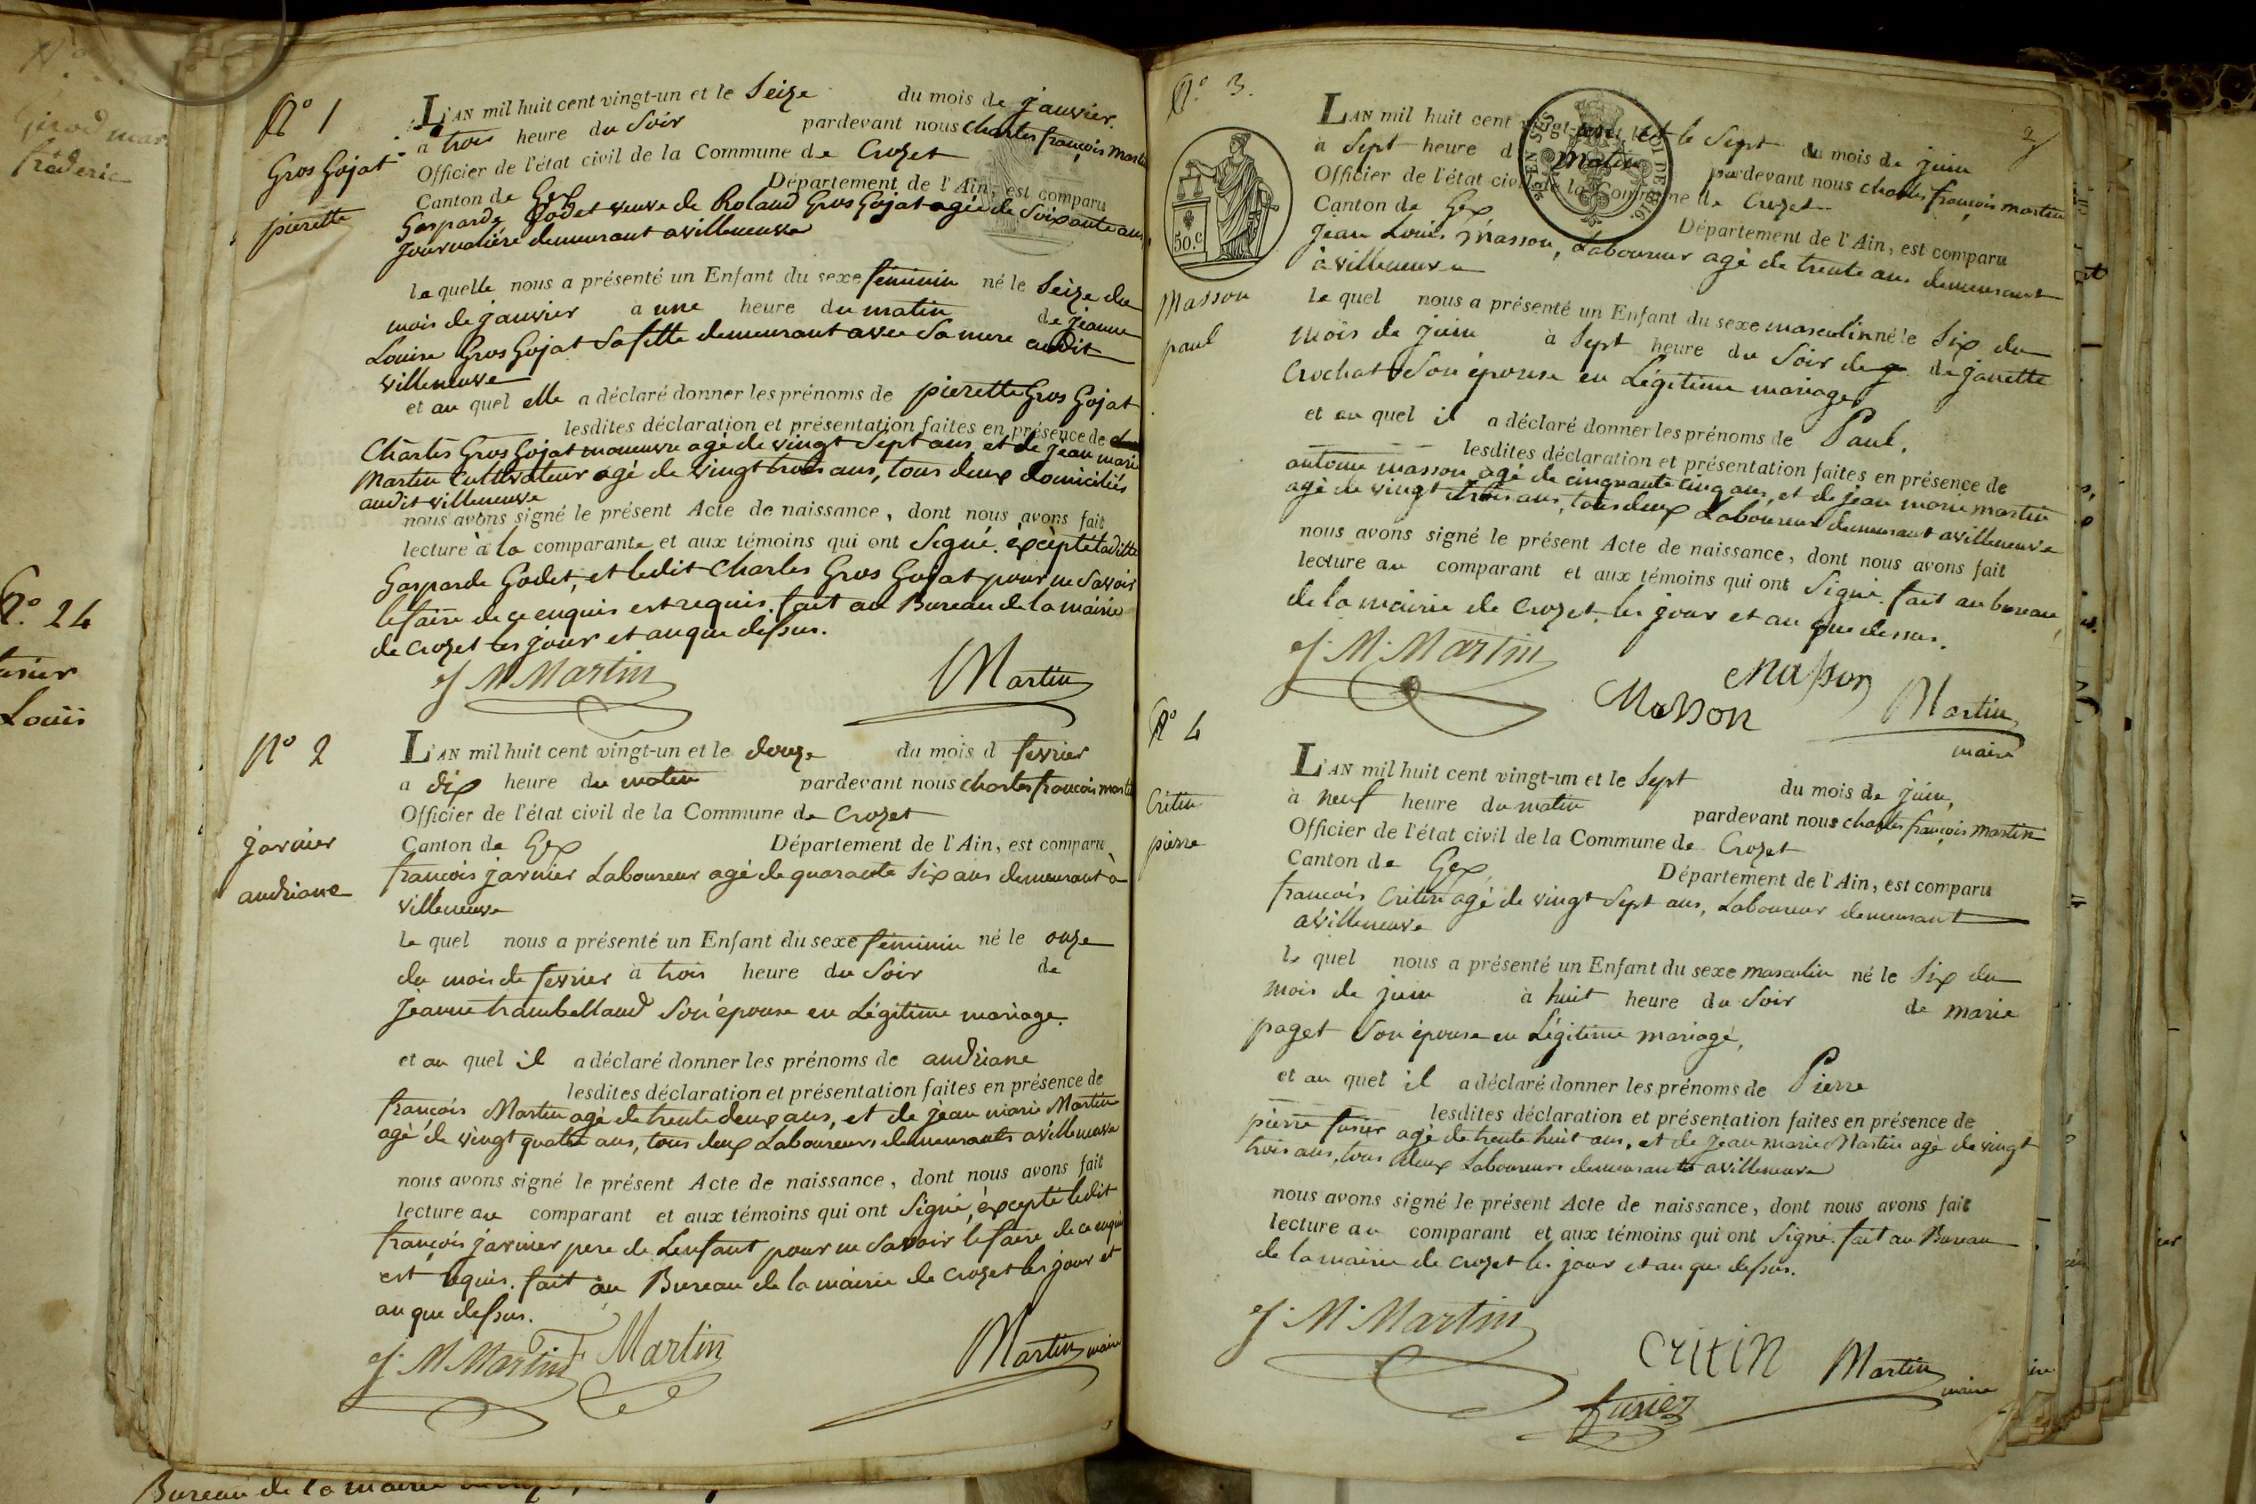 Girod mar
fréderic
N.º 24
Louis
Nº 1
Gros Gojat
pierette
L'AN mil huit cent vingt-un et le Seize du mois de janvier.
a trois heure du Soir pardevant nous charles françois Martin
Officier de l'état civil de la Commune de Crozet
Canton de Gex Département de l'Ain, est comparu
Gasparde Godet veuve de Roland Gros Gojat agée de Soixante ans,
journaliére demeurant a villeneuve
la quelle nous a présenté un Enfant du sexe féminin né le Seize du
mois de janvier à une heure du matin de jeanne
Louise Gros Gojat Sa fille demeurant avec Sa mere audit
villeneuve
et au quel elle a déclaré donner les prénoms de pierette Gros Gojat
lesdites déclaration et présentation faites en présence de
Charles Gros Gojat manœuvre agé de vingt Sept ans, et de jean marie
Martin Cultivateur agé de vingt trois ans, tous deux domiciliés
audit villeneuve
nous avons signé le présent Acte de naissance, dont nous avons fait
lecture à la comparante et aux témoins qui ont Signé. excèpté laditte
Gasparde Godet, et ledit Charles Gros Gojat pour ne Savoir
le faire de ce enquis est requis. fait au Bureau de la mairie
de Crozet les jour et an que dessus.
J M Martin
Martin
Nº 2
jarnier
andriane
L'AN mil huit cent vingt-un et le douze du mois d fevrier
a dix heure du matin pardevant nous charles françois martin
Officier de l'état civil de la Commune de Crozet
Canton de Gex Département de l'Ain, est comparu
françois jarnier Laboureur agé de quarante Six ans demeurant à
villeneuve
le quel nous a présenté un Enfant du sexe féminin né le onze
du mois de fevrier à trois heure du Soir de
Jeanne trambelland Son épouse en Légitime mariage.
et au quel il a déclaré donner les prénoms de andriane
lesdites déclaration et présentation faites en présence de
françois Martin agé de trente deux ans, et de jean marie Martin
agé de vingt quatre ans, tous deux Laboureurs demeurants a villeneuve
nous avons signé le présent Acte de naissance, dont nous avons fait
lecture au comparant et aux témoins qui ont Signé, éxcepté ledit
françois jarnier pere de Lenfant pour ne Savoir le faire de ce enquis
est requis. fait au Bureau de la mairie de Crozet les jour et
an que dessus.
J. M Martin
F Martin
Martin maire
Bureau de la mairie
Nº 3.
2
50.c
Masson
paul
L'AN mil huit cent vingt-un et le Sept du mois de juin
à Sept heure du matin pardevant nous charles françois martin
Officier de l'état civil de la Commune de Crozet
Canton de Gex Département de l'Ain, est comparu
jean Louis Masson, Laboureur agé de trente ans demeurant
à villeneuve
le quel nous a présenté un Enfant du sexe masculin né le Six du
mois de juin à Sept heure du Soir de de janette
Crochat Son épouse en Légitime mariage,
et au quel il a déclaré donner les prénoms de Paul.
lesdites déclaration et présentation faites en présence de
antoine masson agé de cinquante cinq ans, et de jean marie martin
agé de vingt trois ans, tous deux Laboureurs demeurant a villeneuve
nous avons signé le présent Acte de naissance, dont nous avons fait
lecture au comparant et aux témoins qui ont Signé. fait au bureau
de la mairie de Crozet. les jour et an que dessus.
J. M. Martin
Masson
Masson
Martin
maire
Nº 4
Critin
pierre
L'AN mil huit cent vingt-un et le Sept du mois de juin,
à neuf heure du matin pardevant nous charles françois martin
Officier de l'état civil de la Commune de Crozet
Canton de Gex Département de l'Ain, est comparu
françois Critin agé de vingt Sept ans, Laboureur demeurant
a villeneuve
le quel nous a présenté un Enfant du sexe masculin né le Six du
mois de juin à huit heure du Soir de marie
paget Son épouse en Légitime mariagé,
et au quel il a déclaré donner les prénoms de Pierre
lesdites déclaration et présentation faites en présence de
pierre fusier agé de trente huit ans, et de Jean marie Martin agé de vingt
trois ans, tous deux Laboureurs demeurants a villeneuve
nous avons signé le présent Acte de naissance, dont nous avons fait
lecture au comparant et aux témoins qui ont Signé. fait au Bureau
de la mairie de Crozet les jour et an que dessus.
J. M. Martin
Critin
Martin
maire
fusier